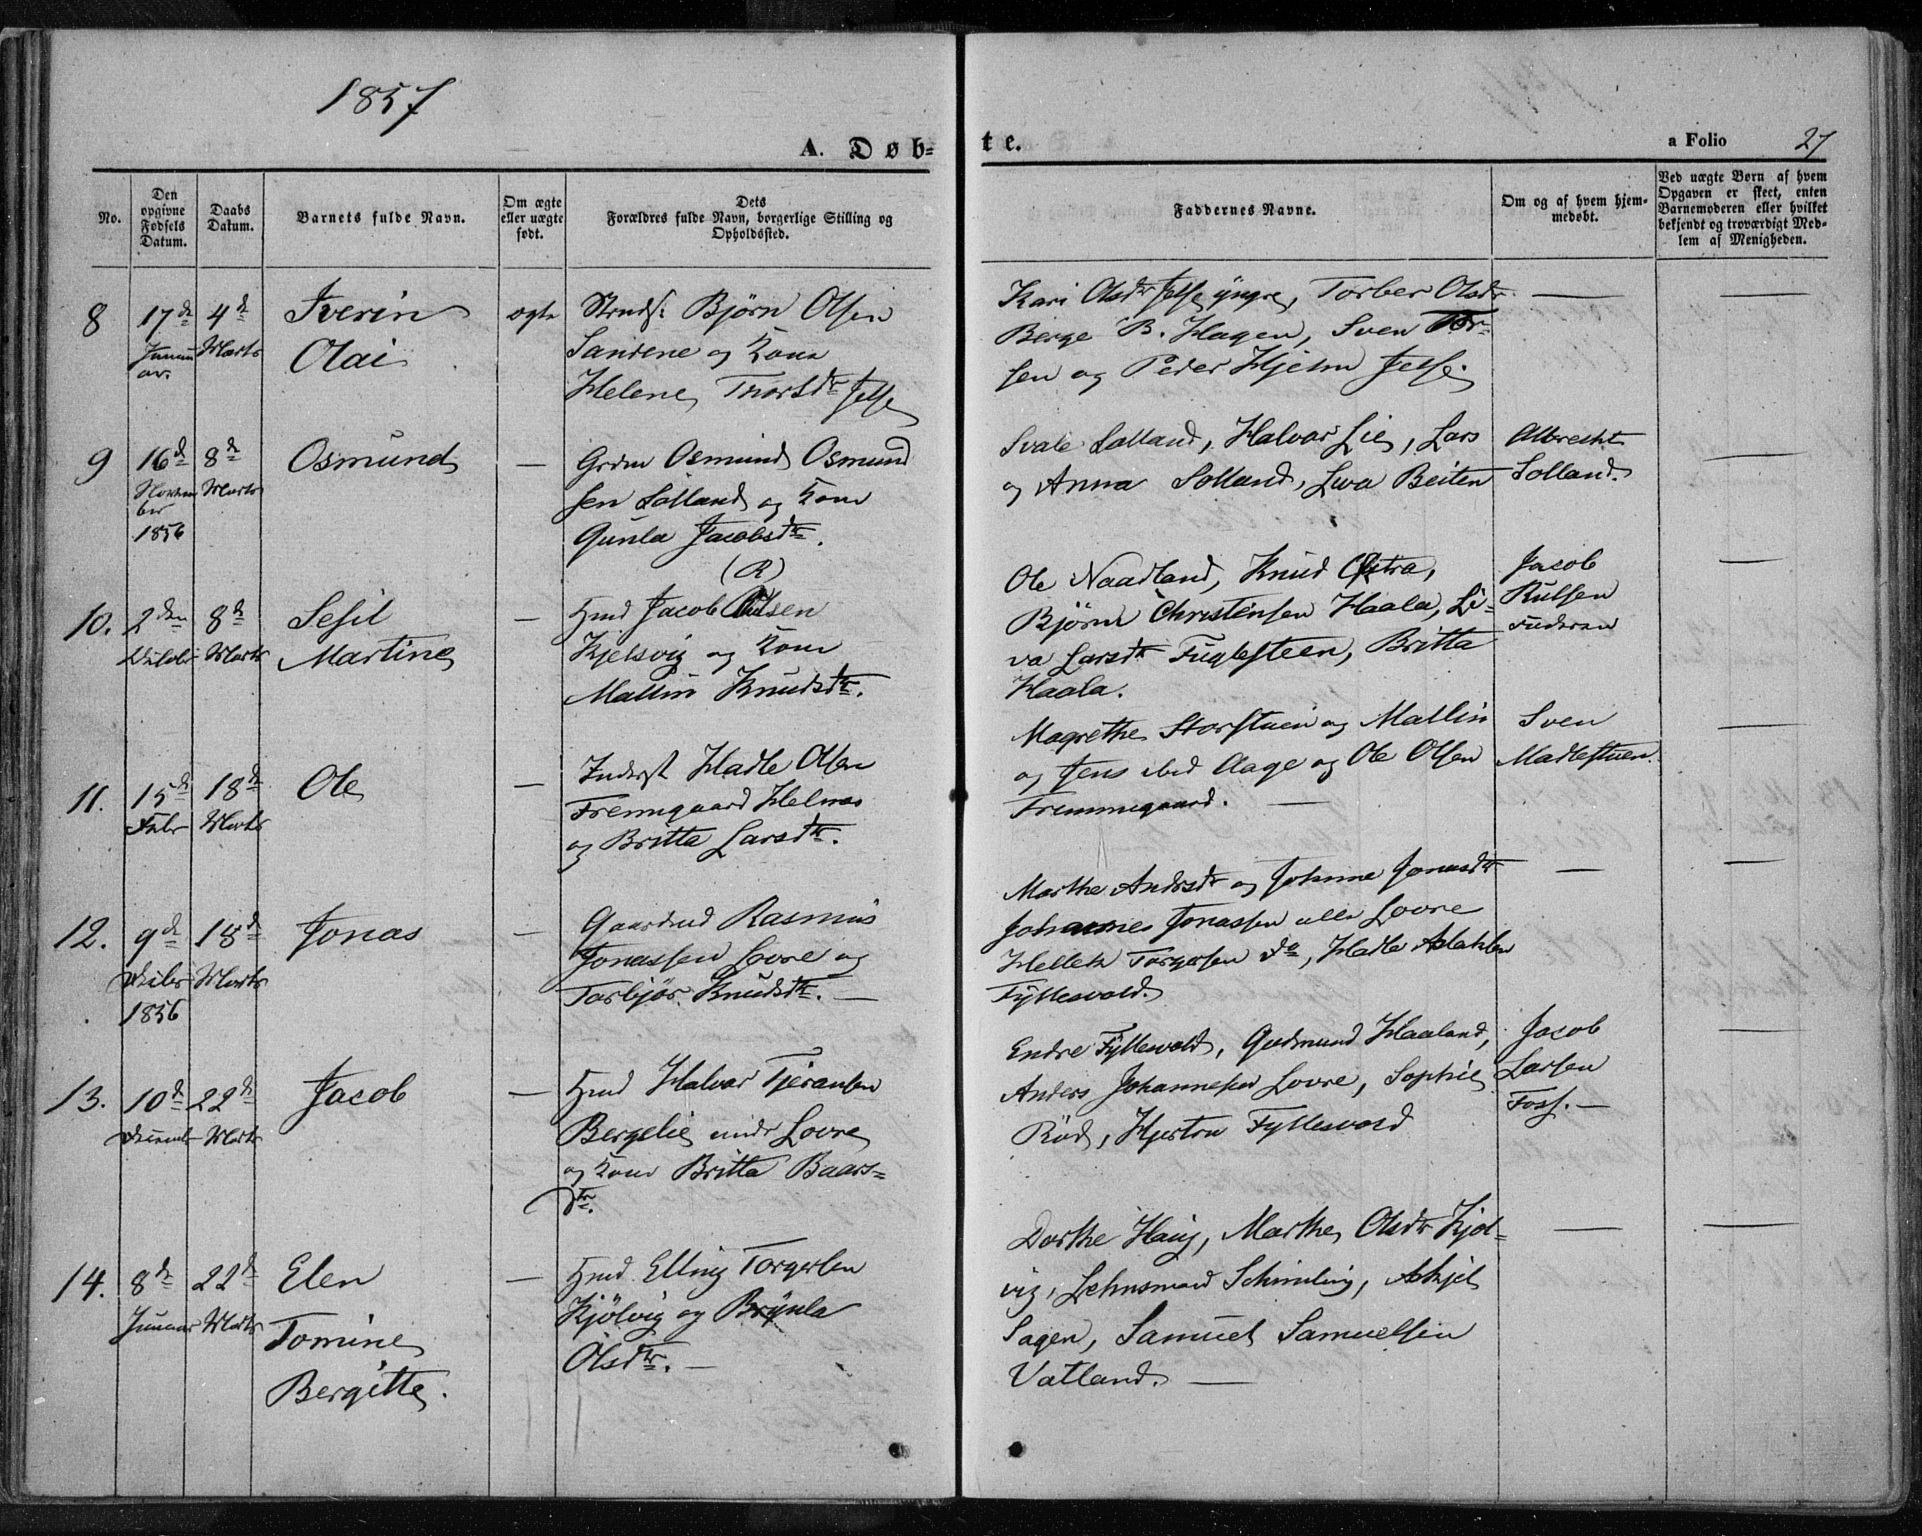 1857
A. Døb-
te.
a Folio 27
No.
Den opgivne Fødsels Datum.
Daabs Datum.
Barnets fulde Navn.
Om ægte eller uægte født.
Dets Forældres fulde Navn, borgerlige Stilling og Opholdssted.
Faddernes Navne.
Om og af hvem hjem-
medøbt.
Ved uægte Børn af hvem
Opgaven er skeet, enten
Barnemoderen eller hvilket
bekjendt og troværdigt Med-
lem af Menigheden.
8 17de Januar 4de Marts
Iverin
Olai
ægte
Strands. Bjørn Olsen
Sandene og Kone
Helene Thorsdtr Jelse
Kari Olsdtr Jelse yngre, Torber Olsdtr
Berge B. Hagen, Sven Tor-
sen og Peder Hjelm Jelse.
—
9 16de November 1856 8de Marts
Osmund
—
Grdm Osmund Osmund
sen Solland og Kone
Gunla Jacobsdtr.
Svale Solland, Halvor Lie, Lars
og Anna Solland, Liva Beiten
Albrecht
Solland.
—
10. 2den 8de Marts
Sesil
Martine
—
(R)
Hmd Jacob Rulsen
Kjelsvig og Kone
Mallin Knudsdtr.
Ole Naadland, Knud Østra,
Bjørn Christensen Haala, Li-
va Larsdtr Fuglesteen, Britta
Haala.
Jacob
Rulsen
Faderen
—
11. 15de Febr 18de Marts
Ole
—
Inderst Hadle Olsen
Fremgaard Helnæs
og Britta Larsdtr.
Magrethe Storstuen og Mallin
og Jens ibid Aage og Ole Olsen
Fremmegaard. —
Sven
Madlestuen.
—
12. 9de Decbr 1856 18de Marts
Jonas
—
Gaardmd Rasmus
Jonassen Lovre og
Torbjør Knudsdtr. —
Marthe Andrsdtr og Johanne Jonasdtr
Johannes Jonassen alle Lovre
Hellek Torgersen do, Hadle Aslaksen
Fyllesvold.
—
—
13. 10de Decembr 22de Marts
Jacob
—
Hmd Halvor Tjeransen
Bergelie under Lovre
og Kone Britta Baars-
dtr.
Endre Fyllesvold, Gudmund Haaland,
Anders Johannesen Lovre, Sophie
Rød, Hjertru Fyllesvold
Jacob
Larsen
Foss. —
—
14. 8de Januar 22de Marts
Elen
Tomine
Bergitte.
—
Hmd. Elling Torgersen
Kjølvig og Brynla
Olsdtr. —
Dorthe Haug, Marthe Olsdtr Kjøl-
vig, Lehnsmand Schimling, Askjel
Sagen, Samuel Samuelsen
Vatland. —
—
—